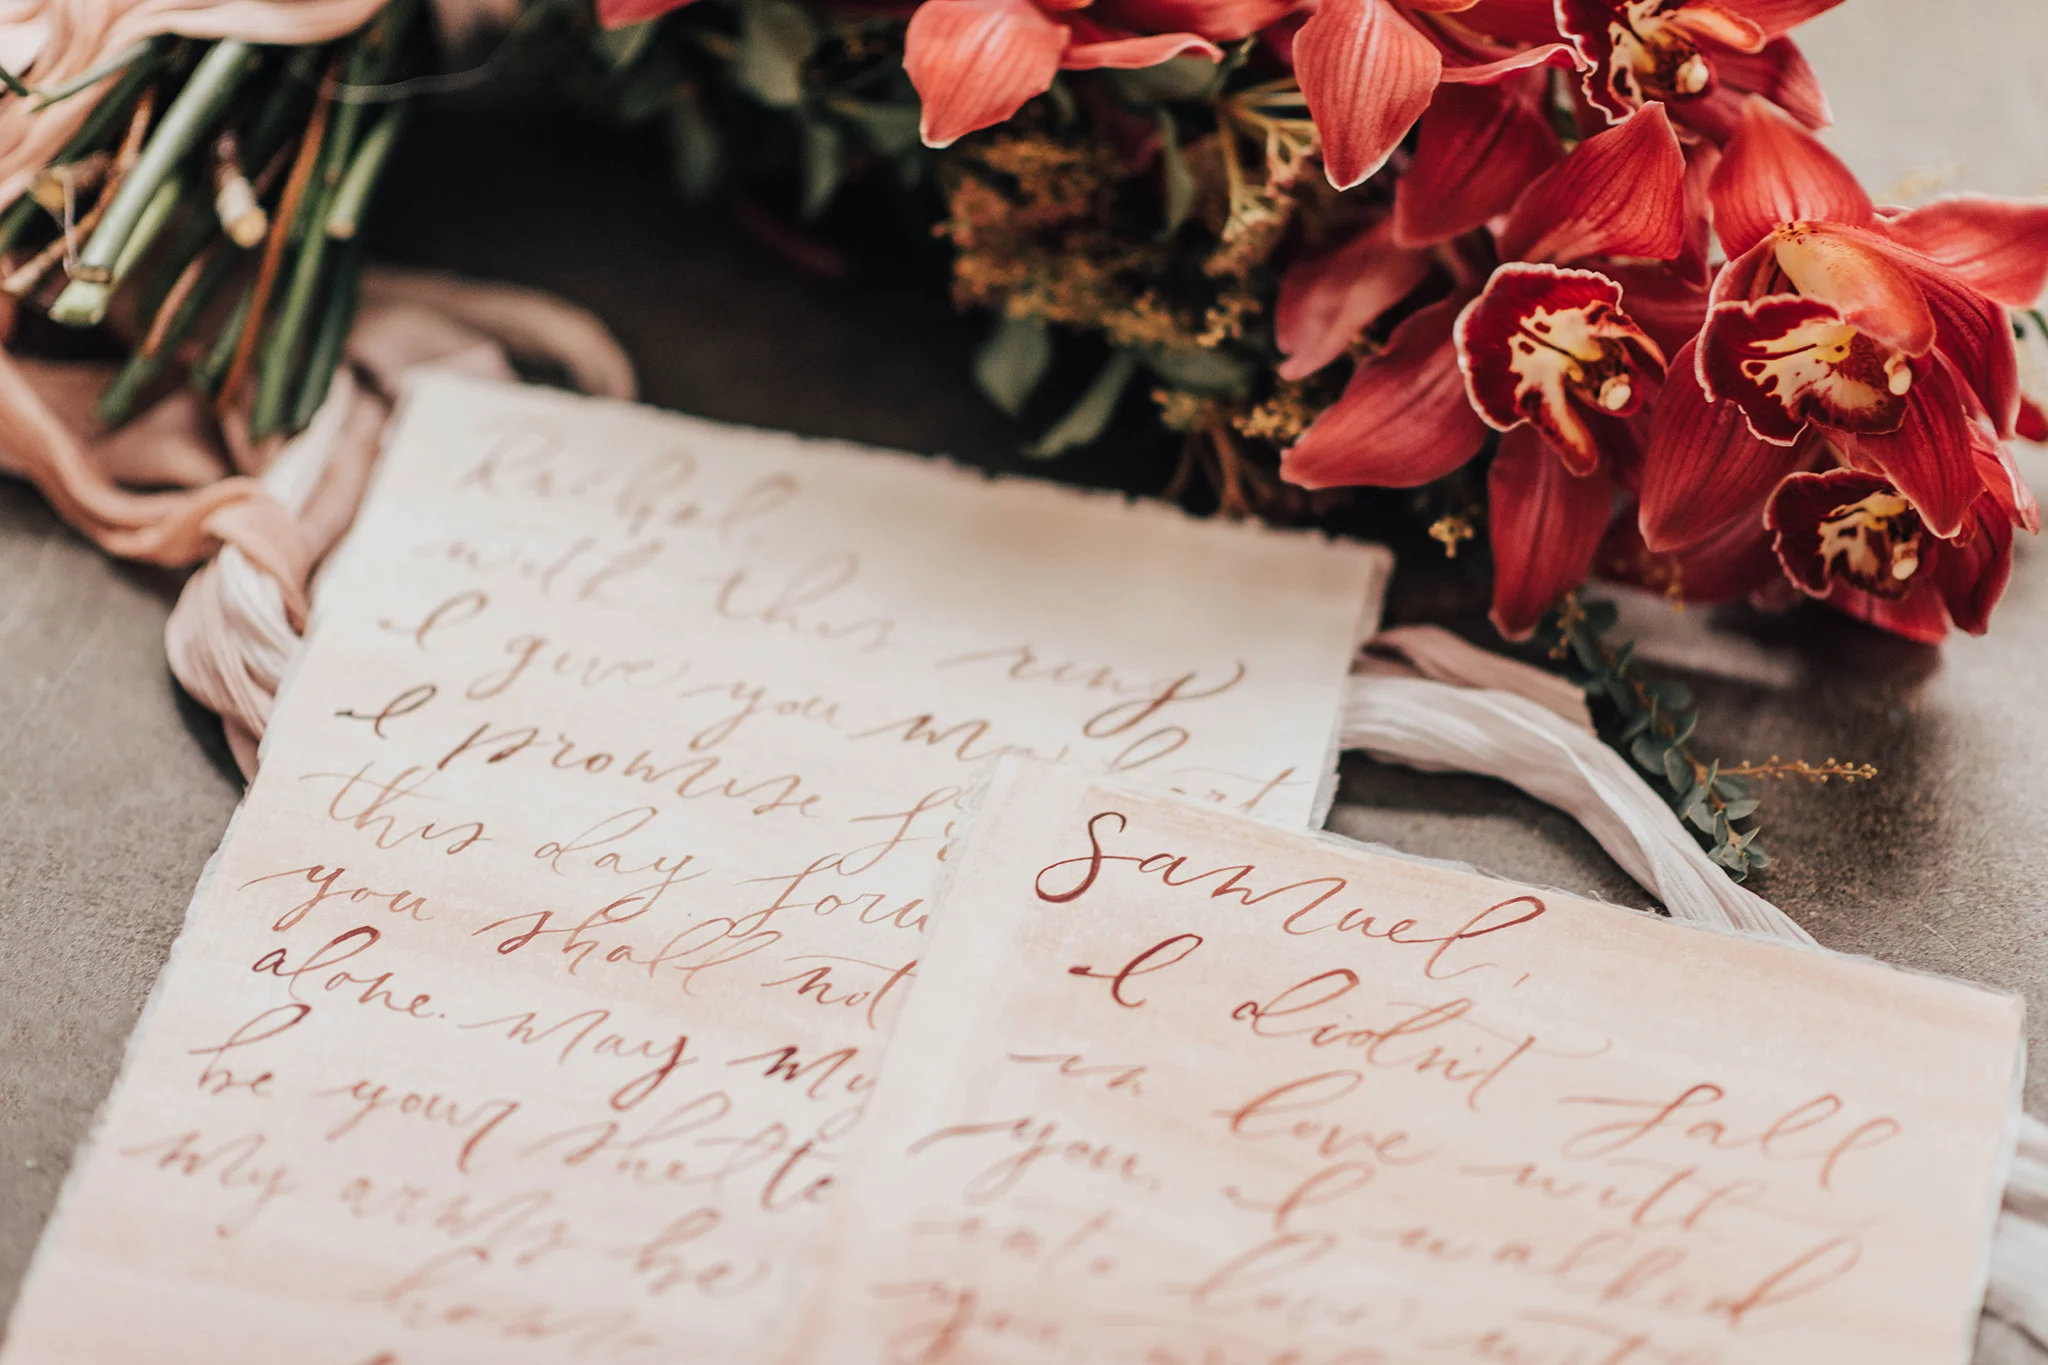 Rachel,
with this ring
I give you my heart
I promise
this day
you shall not
alone. May my
be your
my arms be
home
Samuel,
I didn't fall
in love with
you, I walked
into love
you